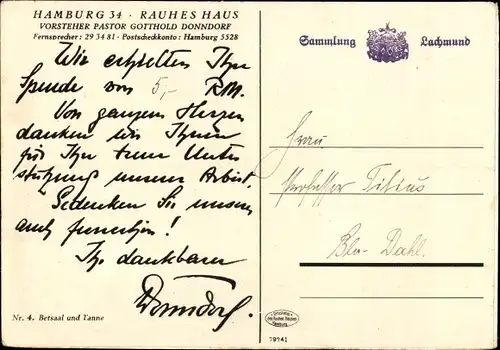 HAMBURG 34 · RAUHES HAUS
VORSTEHER PASTOR GOTTHOLD DONNDORF
Fernsprecher: 29 34 81 · Postscheckkonto: Hamburg 5528
Wir erhielten Ihre
Spende von 5,- RM.
Von ganzem Herzen
danken wir Ihnen
für Ihre treue Unter-
stützung unserer Arbeit.
Gedenken Sie unserer
auch fernerhin!
Ihr dankbarer
Donndorf.
Nr. 4. Betsaal und Tanne
Sammlung Lachmund
Frau
Professor Titius
Bln-Dahl.
79741